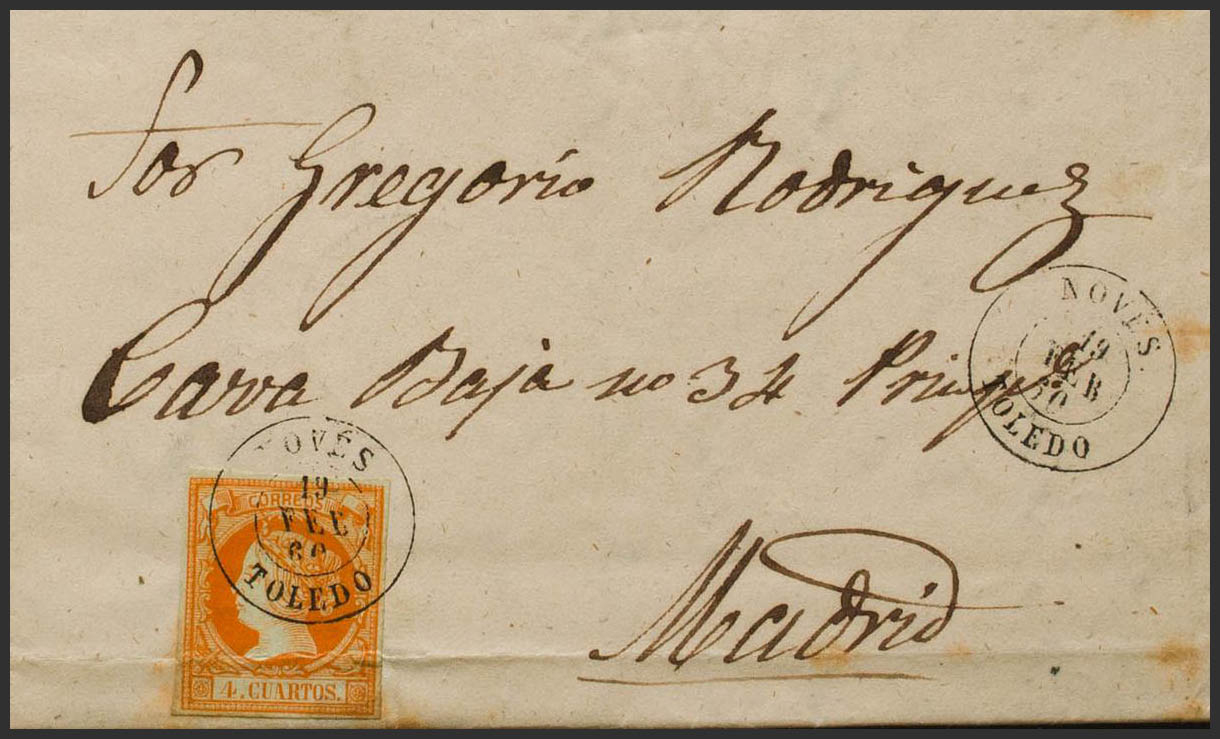 Sor Gregorio Rodriguez
Cava Baja no 34 Prinpl
Madrid
NOVÉS.
19
FEB
60
TOLEDO
NOVÉS
19
FEB
60
TOLEDO
CORREOS
4. CUARTOS.